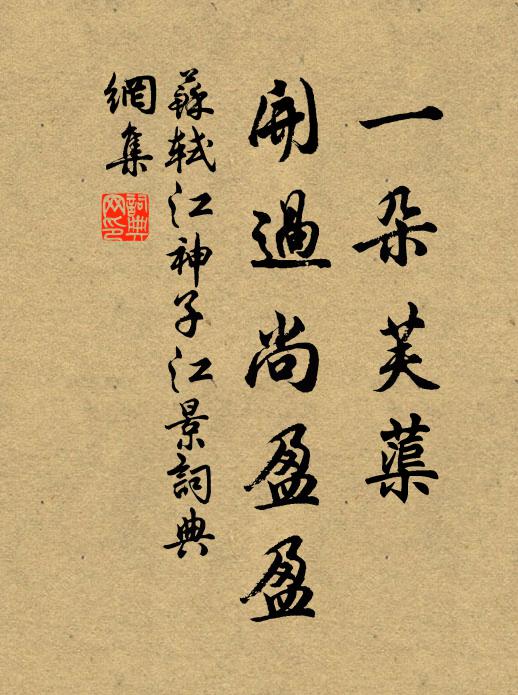 一朵芙蕖
開過尚盈盈
蘇軾江神子江景詞典
網集
詞典网印